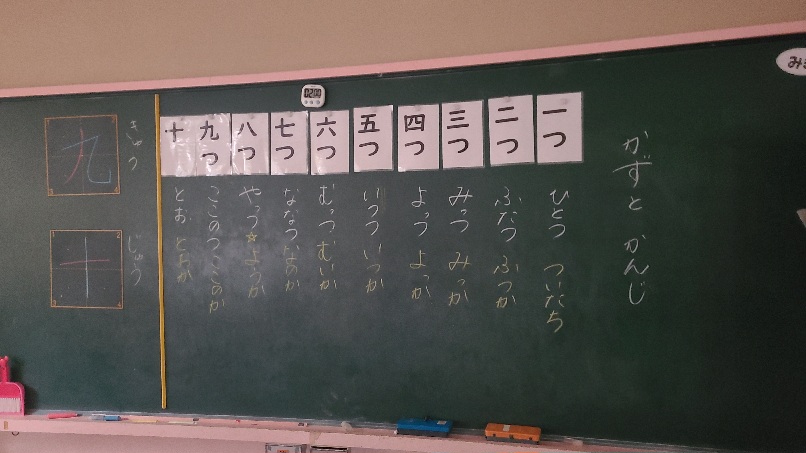 かずと かんじ
一つ
ひとつ ついたち
二つ
ふたつ ふつか
三つ
みっつ みっか
四つ
よっつ よっか
五つ
いつつ いつか
六つ
むっつ むいか
七つ
ななつ なのか
八つ
やっつ☆ようか
九つ
ここのつ ここのか
十
とお とおか
きゅう
九
じゅう
十